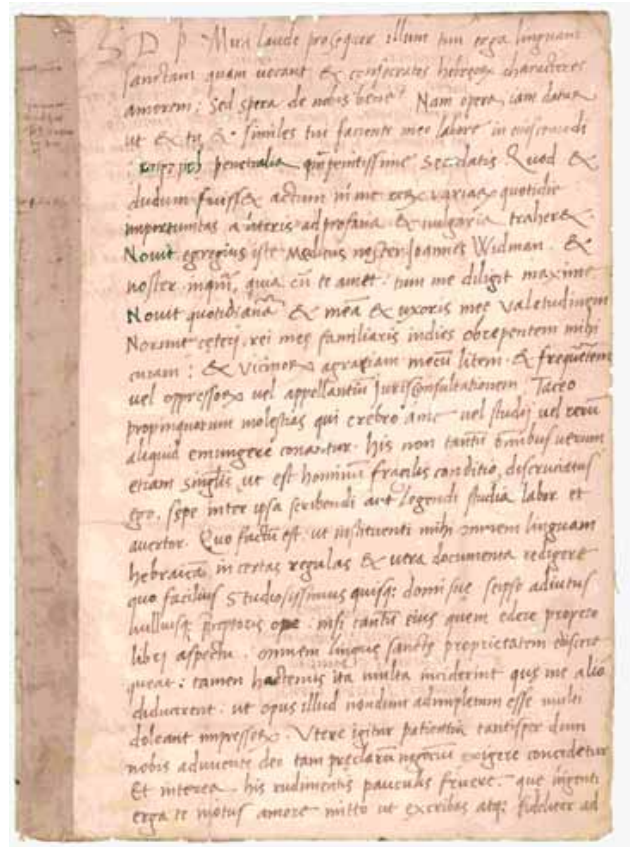 S D P. Mira laude prosequor illum tuu erga linguam
sanctam quam uocant & consecratos hebreoꝝ characteres
amorem: Sed spera de nobis bene. Nam opera iam datur
ut & tu & similes tui faciente meo labore in
penetralia Quod &
dudum fuisset actum ni me reꝝ variaꝝ quotidie
importunitas a ueteris ad profana & uulgaria traheret.
Nouit egregius iste Medicus noster Joannes Widman. &
noster inquā, quia cū te amet, tum me diligit maxime
Nouit quotidianā & meā & uxoris mee valetudinem
Nouit rei mee familiaris indies obrepentem mihi
curam: & vicinoꝝ mecū litem. & frequētem
uel oppressoꝝ uel appellantiū Jurisconsultationem Taceo
propinquorum molestias qui crebro a me uel studij uel rerū
aliquid emungere conantur. his non tantū omnibus uerum
etiam singulis, ut est hominum fragilis conditio, discruciatus
ego, sepe inter ipsa scribendi aut legendi studia labor et
auertor. Quo factū est, ut instituenti mihi omnem linguam
hebraicā in certas regulas & uera documenta redigere
quo facilius Studiosissimus quisq; domi sue seipso adiutus
nulliusq; preceptoris ope. nisi tantū eius quem edere propero
libri aspectu. omnem lingue sancte proprietatem ediscere
queat: tamen hactenus ita multa inciderint que me alio
diducerent. ut opus illud nondum adimpletum esse multi
doleant impressoꝝ. Vtere igitur patientia tantisper dum
nobis adiuuente deo tam preclarū negociū exigere concedetur
Et interea his rudimentis pauculis fruere. que ingenti
erga te motus amore mitto ut excribas atq; fideliter ad